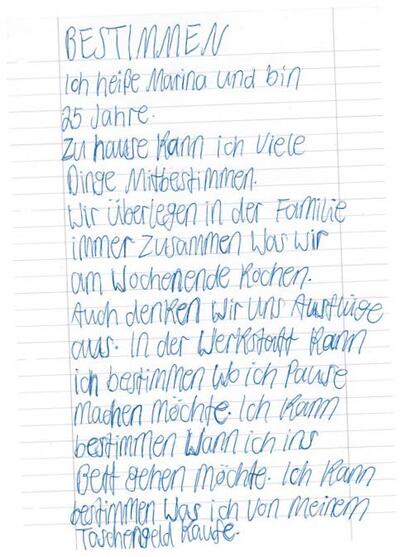 BESTIMMEN
Ich heiße Marina und bin
25 Jahre.
Zu hause kann ich Viele
Dinge Mitbestimmen.
Wir Überlegen in der Familie
immer Zusammen Was wir
am Wochenende Kochen.
Auch denken Wir Uns Ausflüge
aus. In der Werkstatt kann
ich bestimmen Wo ich Pause
Machen Möchte. Ich kann
bestimmen Wann ich ins
Bett gehen Möchte. Ich kann
bestimmen Was ich Von Meinem
Taschengeld Kaufe.